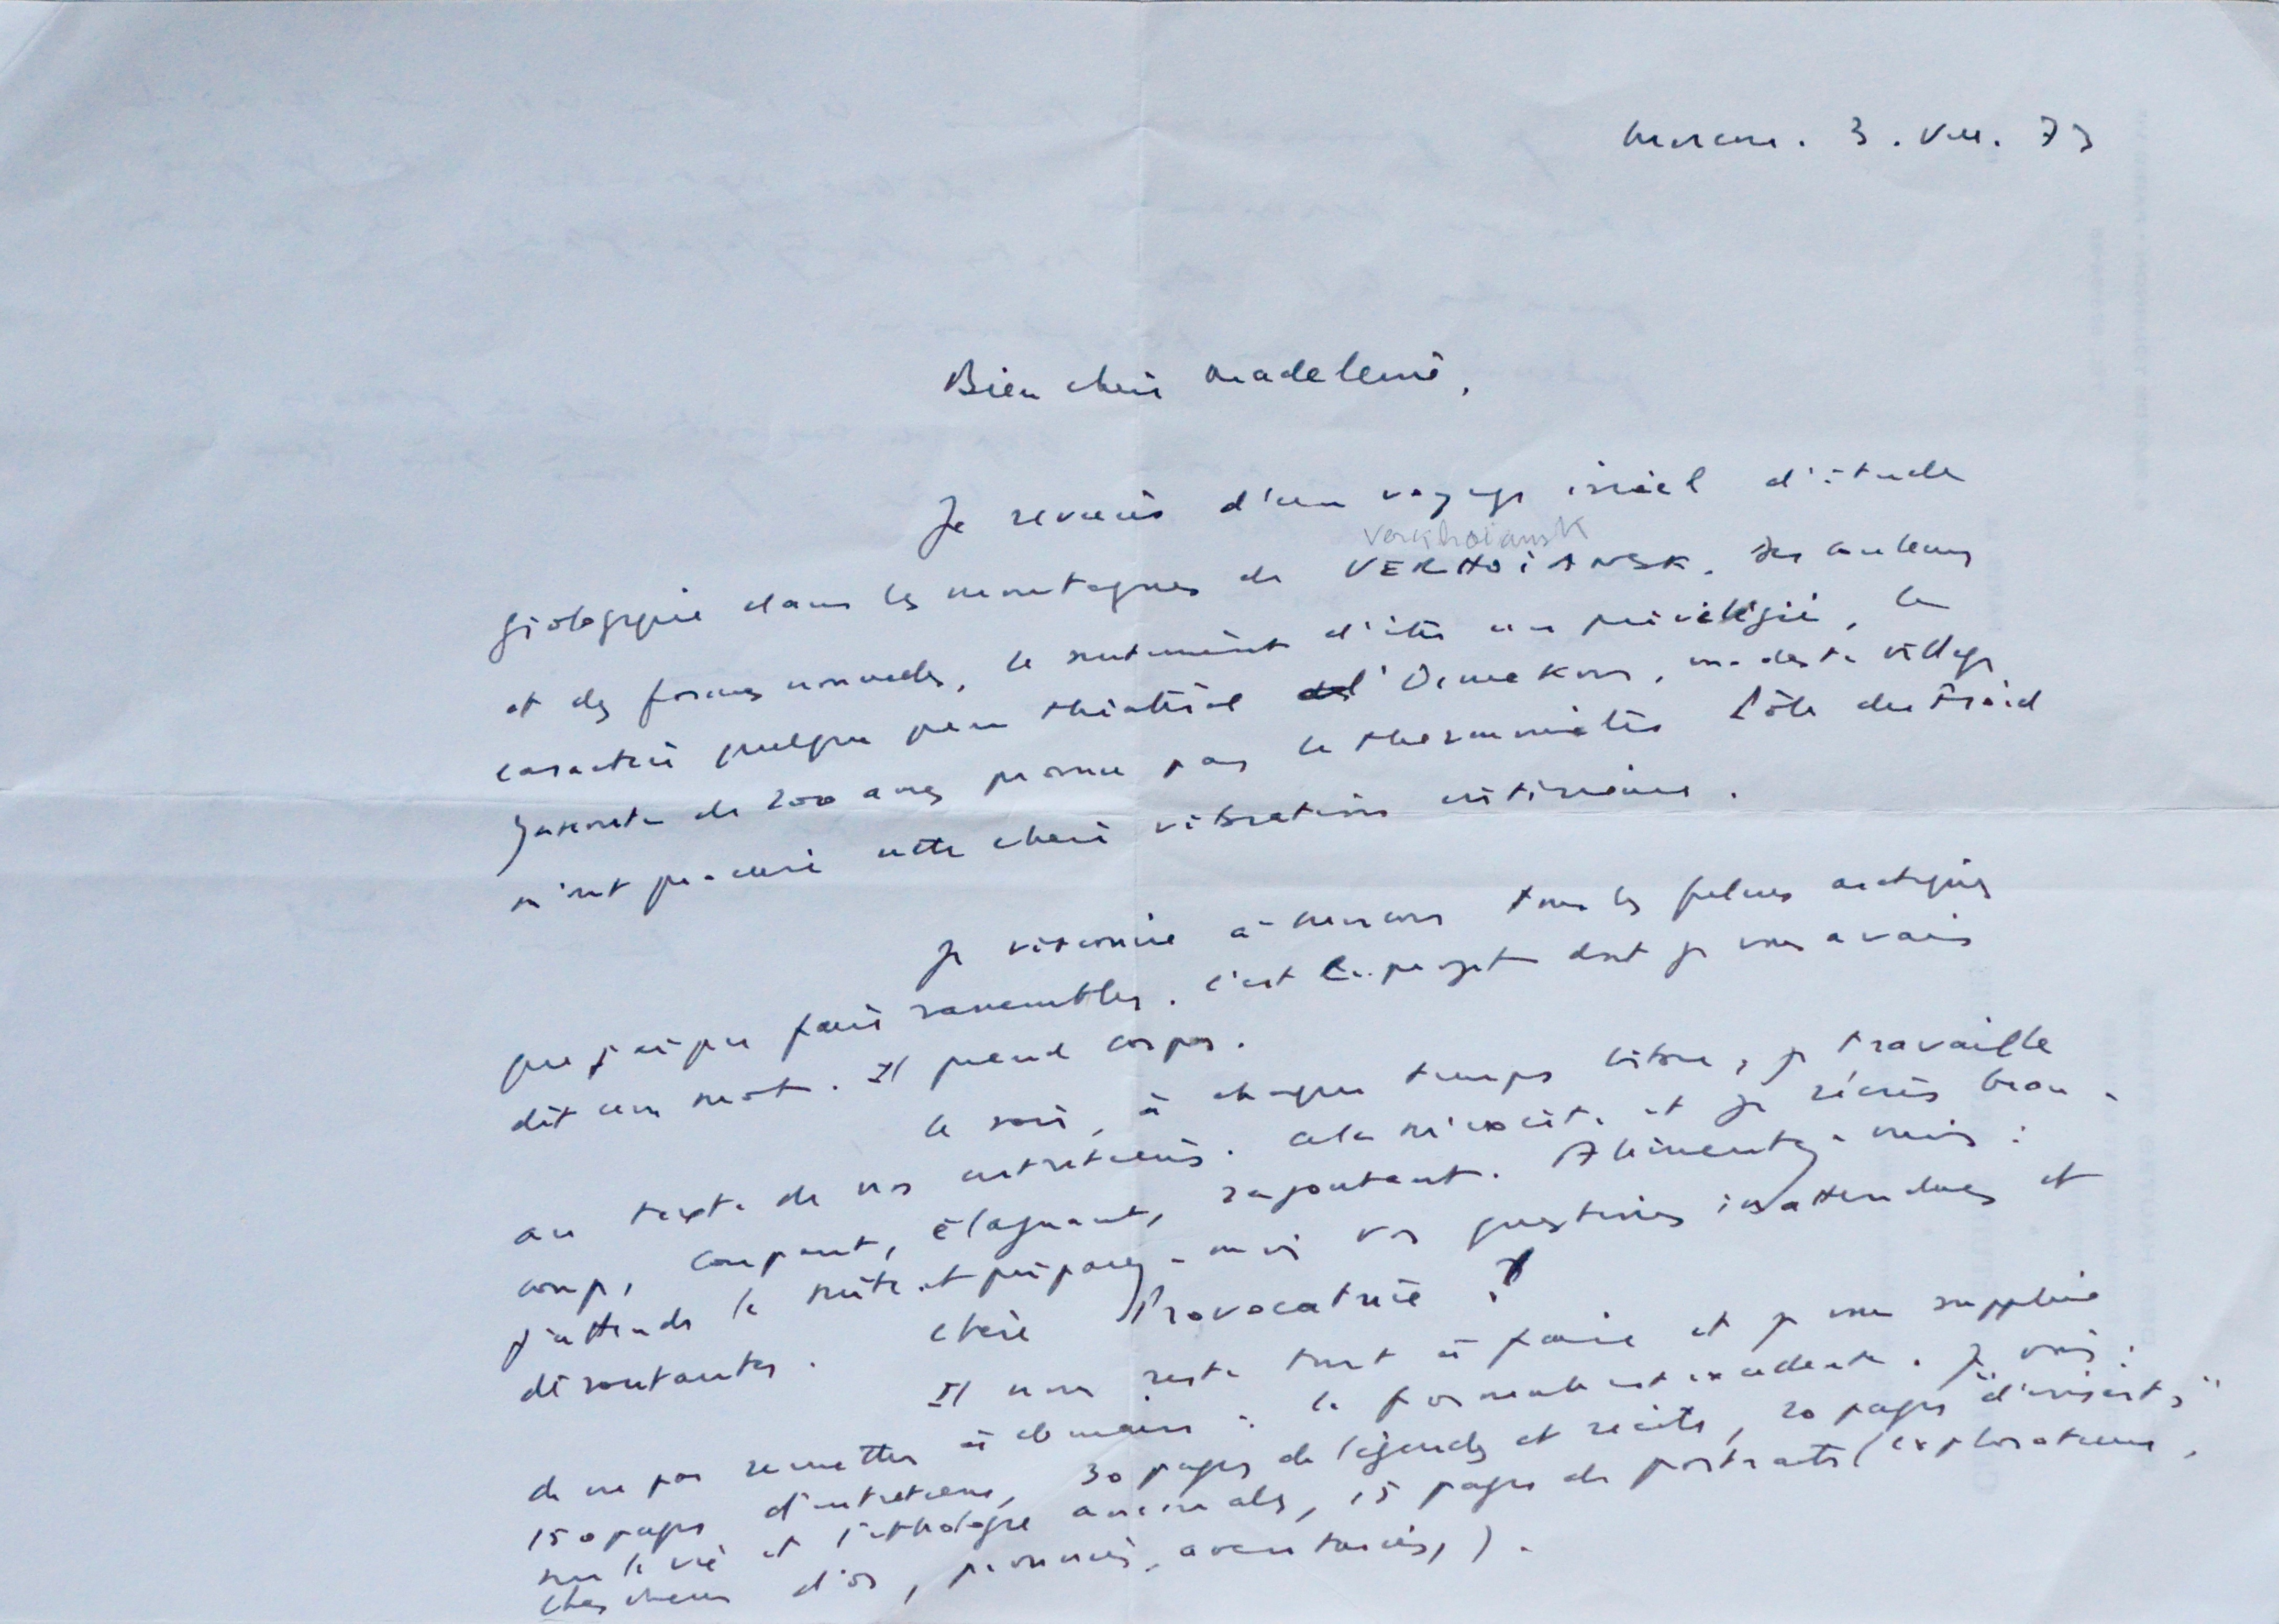 Moscou. 3. VIII. 73
Bien chère Madeleine,
Je reviens d'un voyage isolé d'étude
Verkhoiansk
géologique dans les montagnes de VERKHOIANSK. Des couleurs
et des formes nouvelles, le sentiment d'être un privilégié, le
caractère quelque peu théâtral d'Oimekon, modeste village
Yakoute de 200 âmes promu par le thermomètre Pôle du Froid
m'ont procuré cette chère vibration intérieure.
Je visionne à Moscou tous les films arctiques
que j'ai pu faire rassembler. C'est le projet dont je vous avais
dit un mot. Il prend corps.
Le soir, à chaque temps libre, je travaille
au texte de nos entretiens. Cela m'excite et je récris beau-
coup, coupant, élaguant, rajoutant. Alimentez-moi :
j'attends la suite et préparez-moi vos questions inattendues et
déroutantes. Chère Provocatrice !
Il nous reste tout à faire et je vous supplie
de ne pas remettre à demain : la formule est excellente. Je vois :
150 pages d'entretiens, 30 pages de légendes et récits, 20 pages "d'inserts"
sur la vie et l'éthologie animales, 15 pages de portraits (explorateurs,
chercheurs d'or, pionniers, aventuriers,).